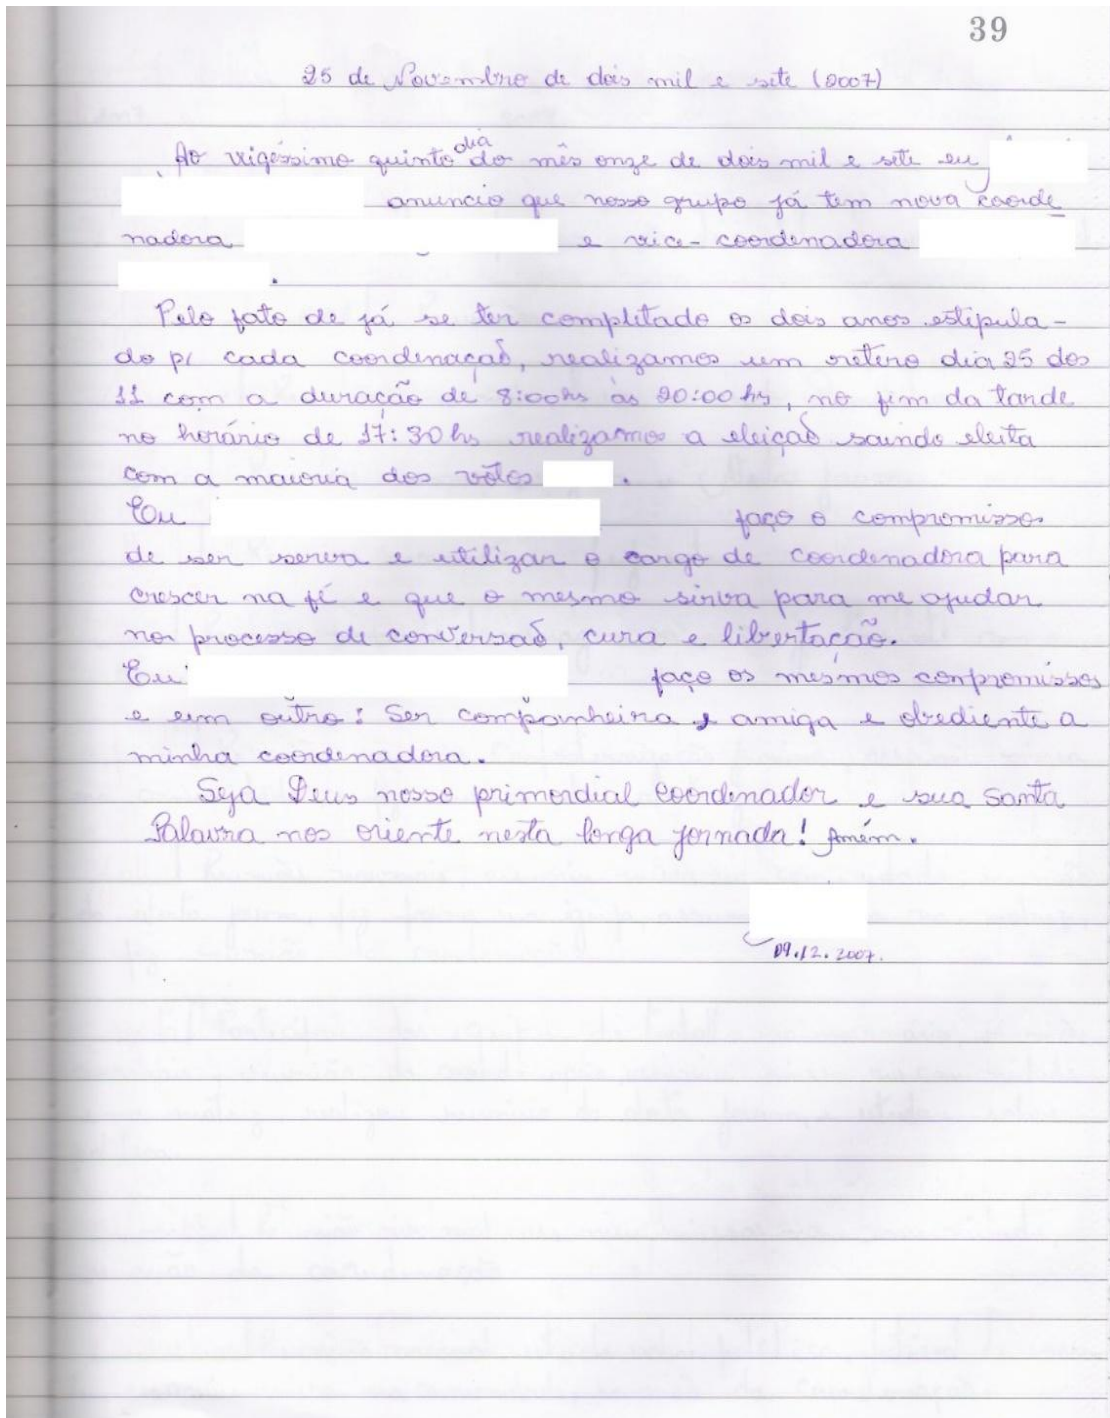 39
25 de Novembro de dois mil e sete (2007)
Ao vigéssimo quinto dia do mês onze de dois mil e sete eu
anuncio que nosso grupo já tem nova coorde
nadora e vice-coordenadora
.
Pelo fato de já se ter completado os dois anos estipula-
do p/ cada coordenação, realizamos um retiro dia 25 dos
11 com a duração de 8:00hs às 20:00 hs, no fim da tarde
no horário de 17:30 hs realizamos a eleição saindo eleita
com a maioria dos vôtos .
Eu faço o compromisso
de ser serva e utilizar o cargo de coordenadora para
crescer na fé e que o mesmo sirva para me ajudar
no processo de conversão, cura e libertação.
Eu faço os mesmos conpromissos
e um outro: Ser companheira, amiga e obediente a
minha coordenadora.
Seja Deus nosso primordial coordenador e sua Santa
Palavra nos oriente nesta longa jornada! Amém.
09.12.2007.